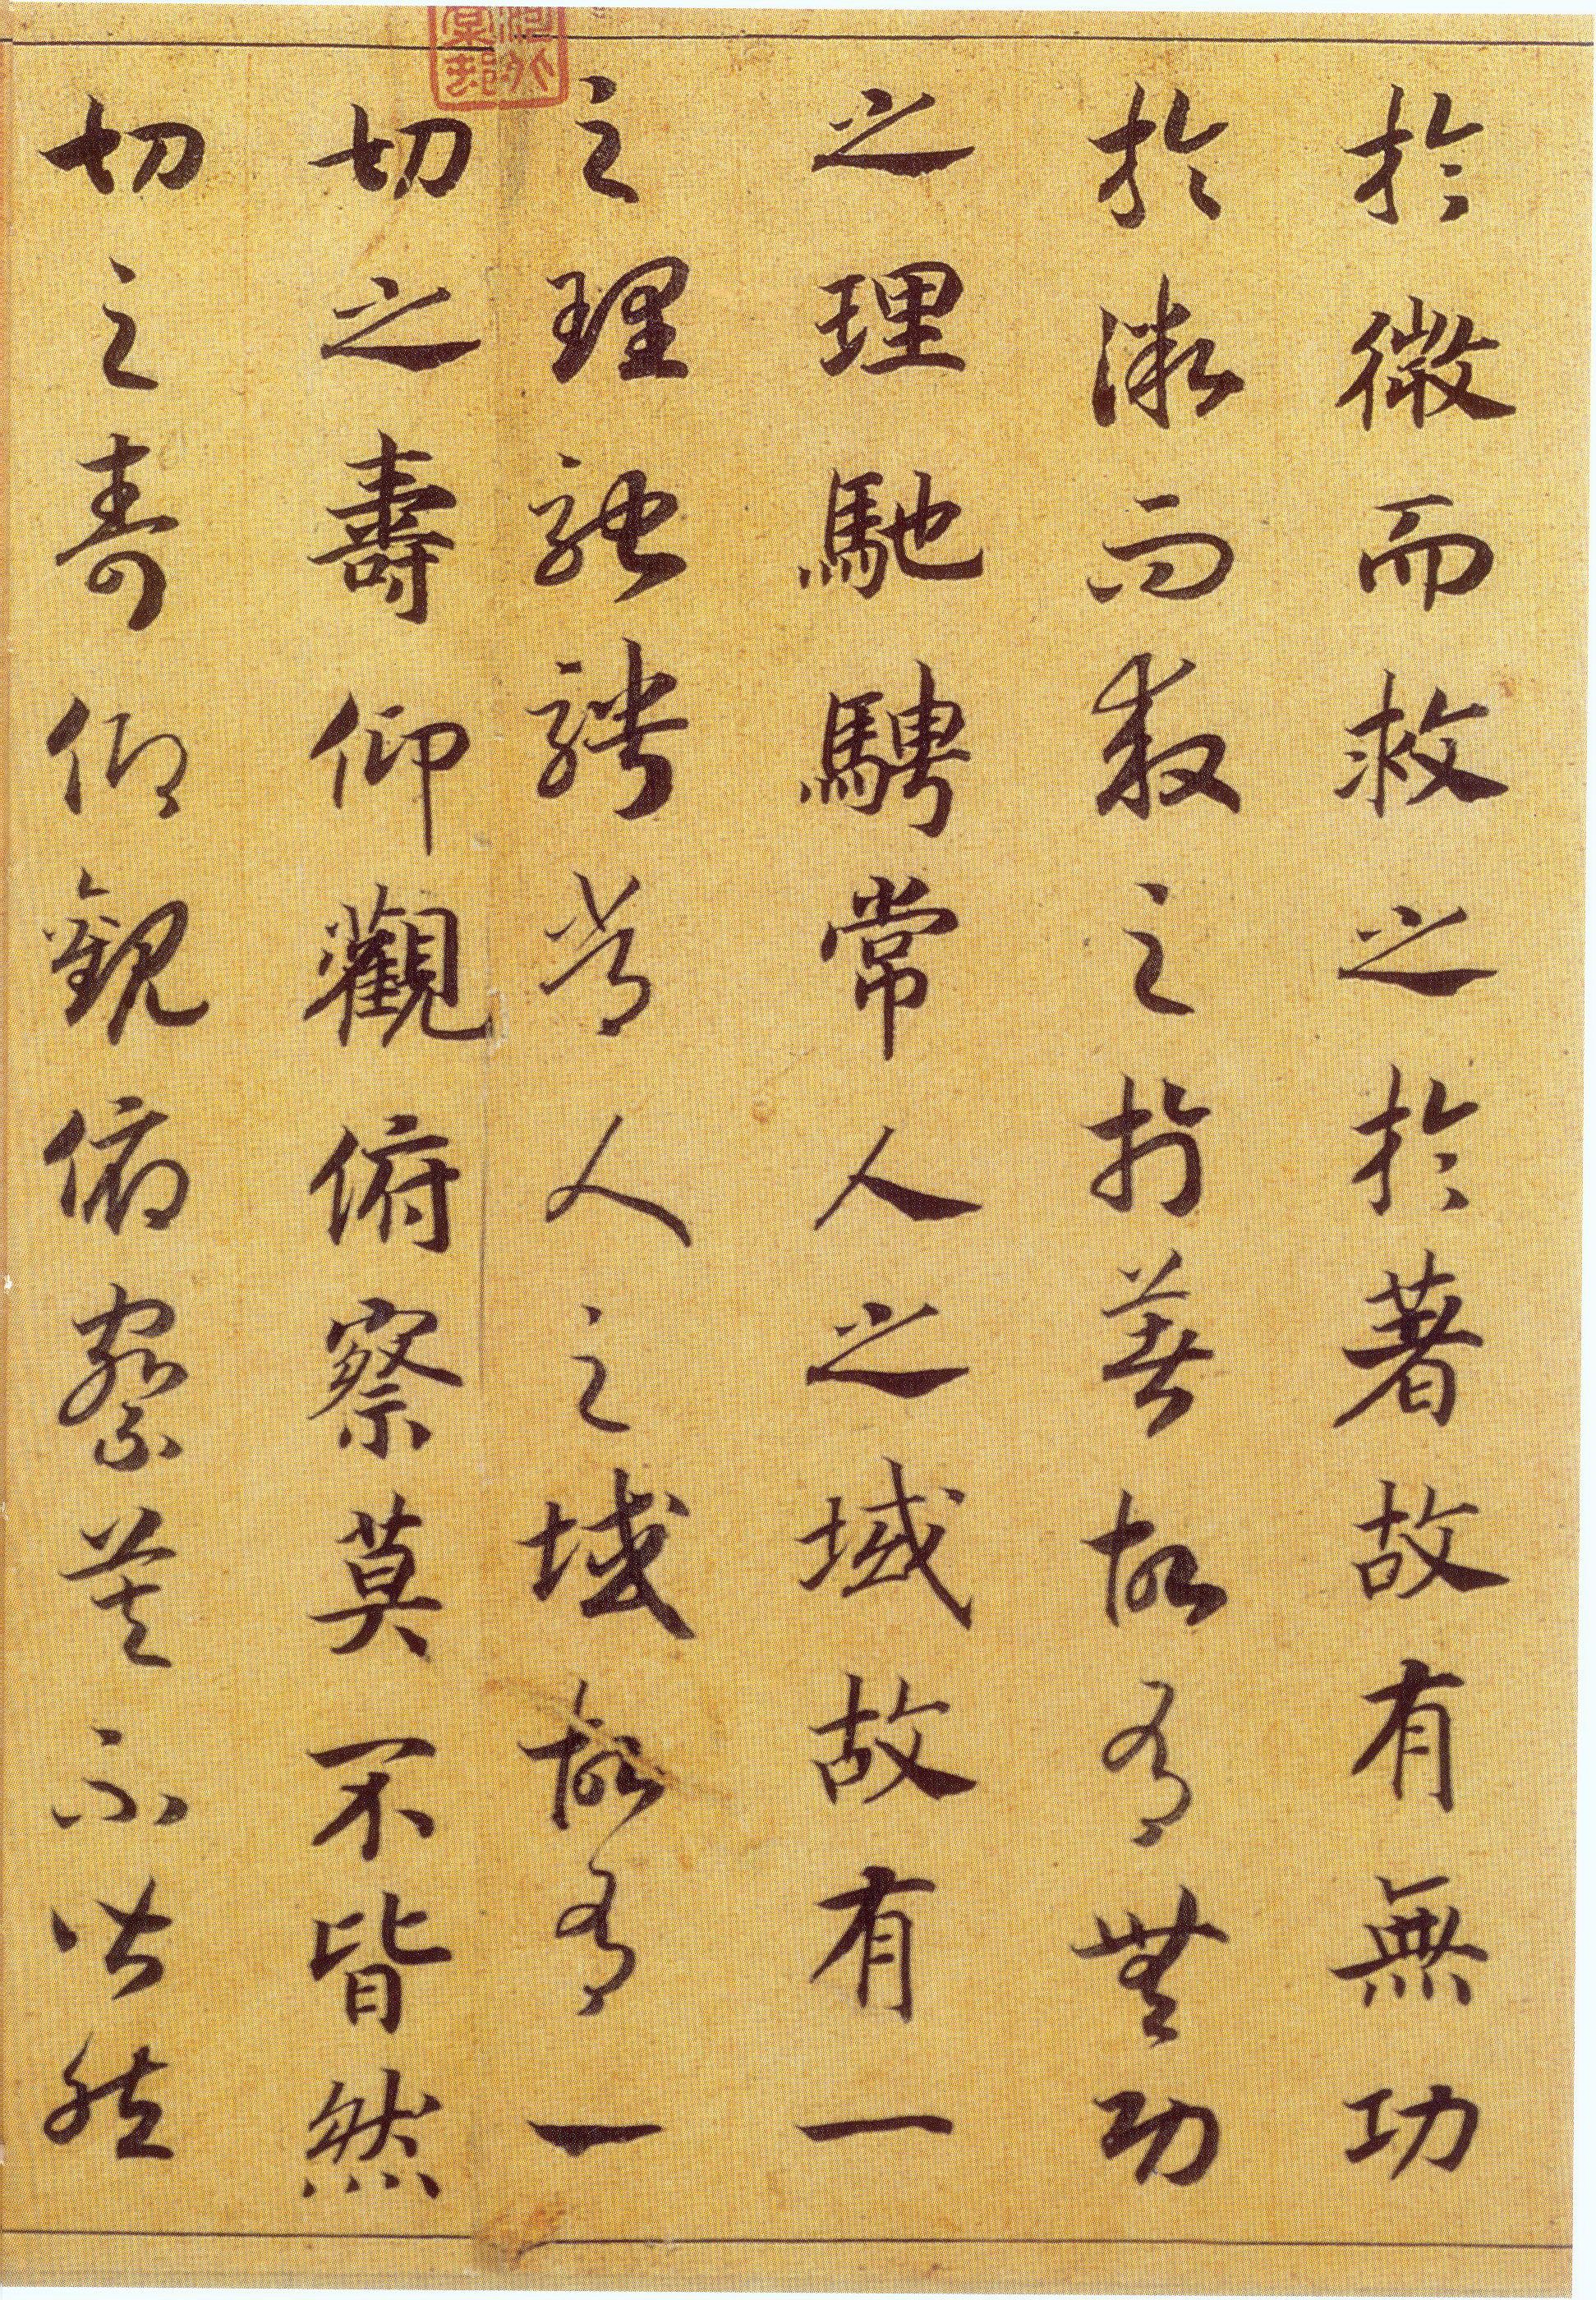 於微而救之於著故有無功
於微而救之於著故有無功
之理馳騁常人之域故有一
之理馳騁常人之域故有一
切之壽仰觀俯察莫不皆然
切之壽仰觀俯察莫不皆然